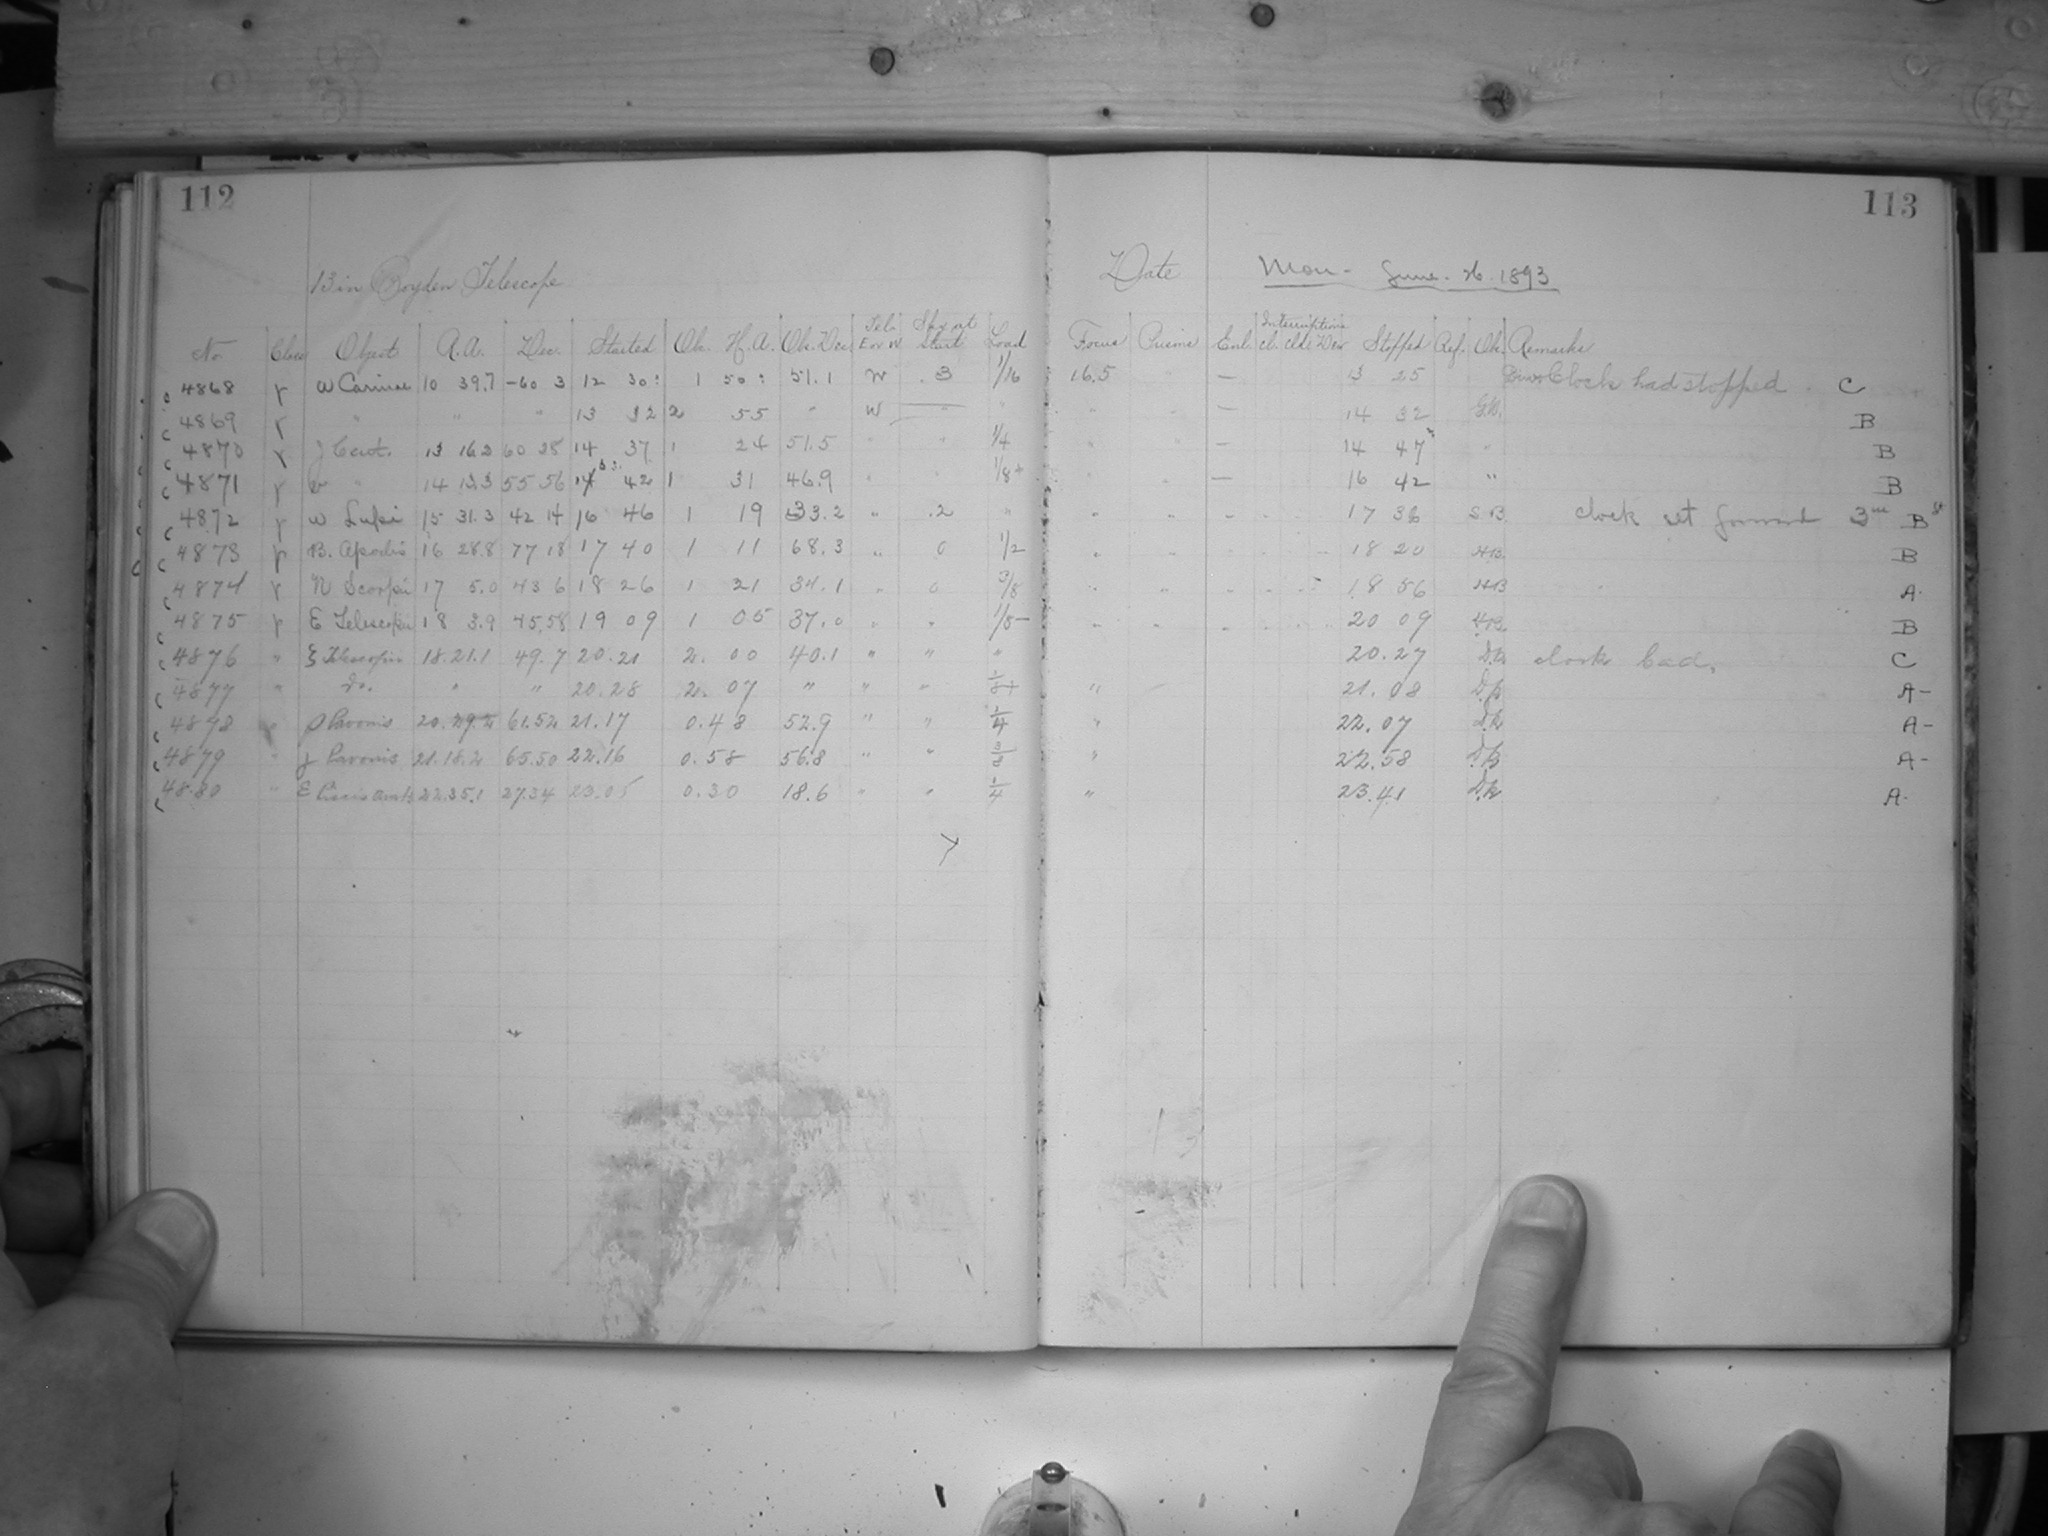 112
113
13 in Boyden Telescope
Date Mon - June 26. 1893
No. Class Object R.A. Dec. Started Ob. H.A. Ob. Dec. Tel. E or W Sky at Start Load Focus Prisms Enl. Interruptions Cl. Cld. Dev. Stopped Ref. Ob. Remarks
4868 γ w Carinae 10 39.7 -60 3 12 30: 1 50: 51.1 W .3 1/16 16.5 " — 13 25 Clock had stopped C
4869 γ " " " 13 32 2 55 " W " " " " — 14 32 B
4870 γ J Cent. 13 16.2 60 28 14 37 1 24 51.5 " " 1/4 " " — 14 47 " B
4871 γ v " 14 13.3 55 56 42 1 31 46.9 " 1/8+ " — 16 42 " B
4872 γ w Lupi 15 31.3 42 14 16 46 1 19 33.2 " .2 " " " 17 36 S.B clock set forward 3m B
4873 γ B. Apodis 16 28.8 77 18 17 40 1 11 68.3 " 0 1/2 " " 18 20 B
4874 γ N Scorpii 17 5.0 43 6 18 26 1 21 34.1 " 0 3/8 " " 18 56 A
4875 γ E Telescopii 18 3.9 45.58 19 09 1 05 37.0 " " " " 20 09 B
4876 " ξ Telescopii 18.21.1 49.7 20.21 2. 00 40.1 " " " 20.27 clock bad. C
4877 " Do. " " 20.28 2. 07 " " " 1/8+ " 21.08 A-
4878 Pavonis 61.52 21.17 0.48 52.9 " " 1/4 " 22.07 A-
4879 " γ Pavonis 21.18.2 65.50 22.16 0.58 56.8 " " 3/8 " 22.58 A-
4880 " E Piscis Aust. 22.35.1 27.34 23.05 0.30 18.6 " " 1/4 " 23.41 A-